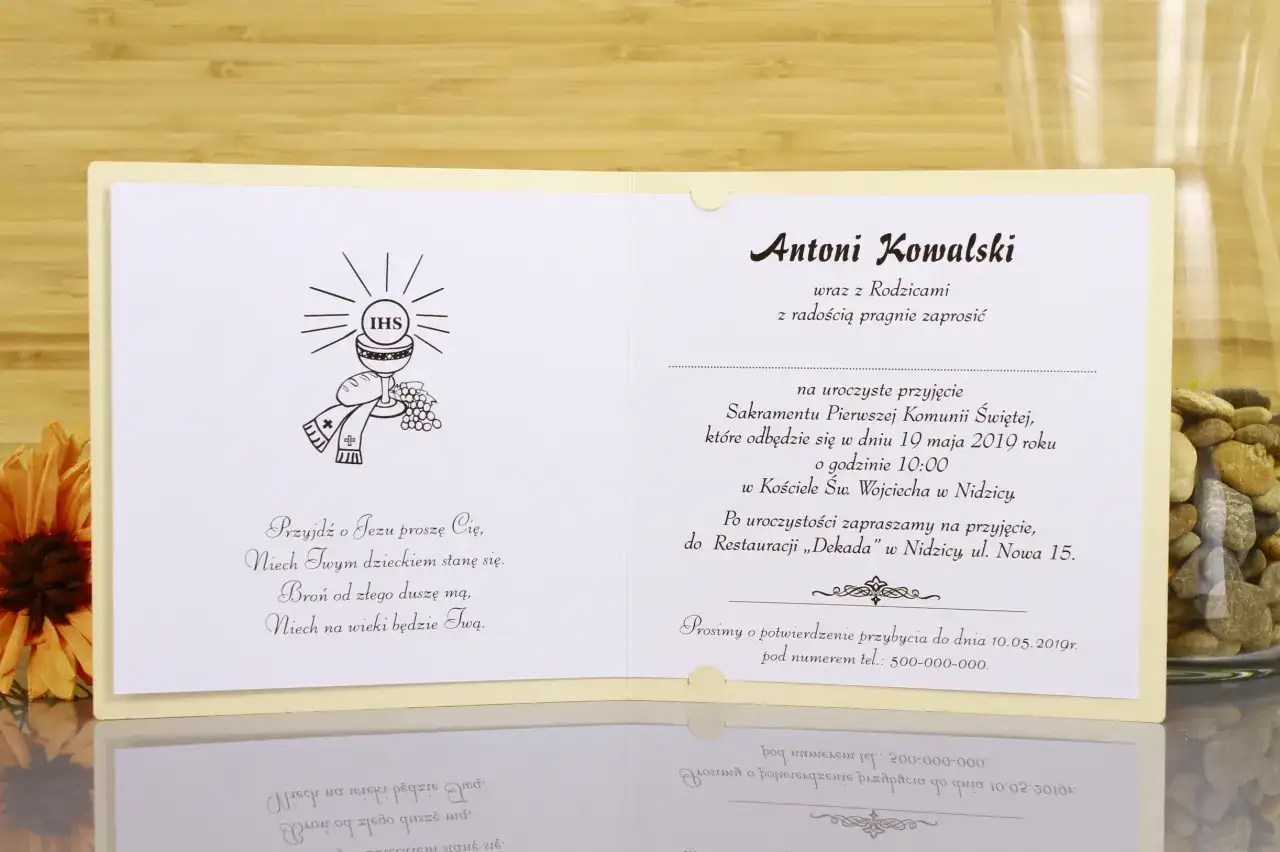 IHS
Przyjdź o Jezu proszę Cię,
Niech Twym dzieckiem stanę się.
Broń od złego duszę mą,
Niech na wieki będzie Twą.
Antoni Kowalski
wraz z Rodzicami
z radością pragnie zaprosić
na uroczyste przyjęcie
Sakramentu Pierwszej Komunii Świętej,
które odbędzie się w dniu 19 maja 2019 roku
o godzinie 10:00
w Kościele Św. Wojciecha w Nidzicy.
Po uroczystości zapraszamy na przyjęcie,
do Restauracji „Dekada” w Nidzicy, ul. Nowa 15.
Prosimy o potwierdzenie przybycia do dnia 10.05.2019r.
pod numerem tel.: 500-000-000.